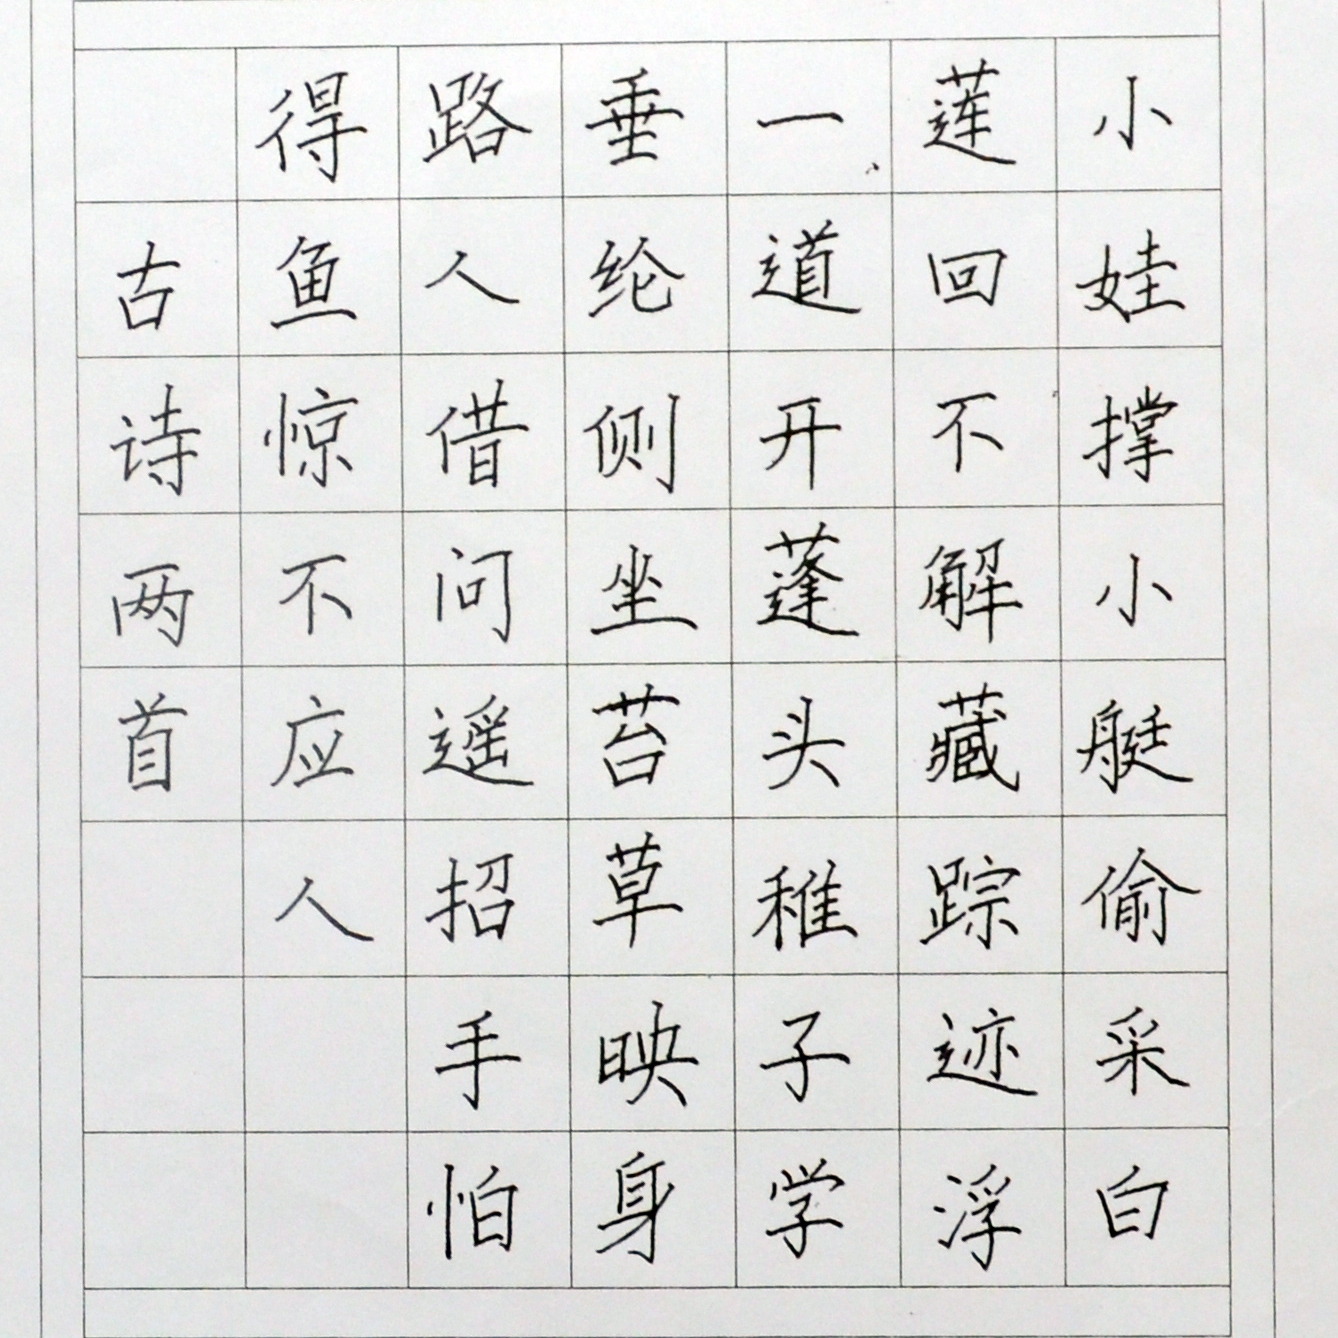 小娃撑小艇偷采白
莲回不解藏踪迹浮
一道开蓬头稚子学
垂纶侧坐莓草映身
路人借问遥招手怕
得鱼惊不应人
古诗两首